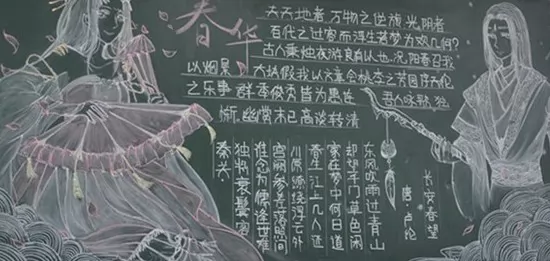 春华
夫天地者,万物之逆旅,光阴者
百代之过客而浮生若梦为欢几何?
古人秉烛夜游良有以也.况阳春召我
以烟景,大块假我以文章会桃李之芳园序天伦
之乐事.群季俊秀皆为惠连 吾人咏歌,独
惭.幽赏未已高谈转清
长安春望
唐·卢纶
东风吹雨过青山
却望千门草色闲
家在梦中何日道
春生江上几人还
川原缭绕浮云外
宫阙参差落照间
谁念为儒逢世难
独将衰鬓客
秦关.